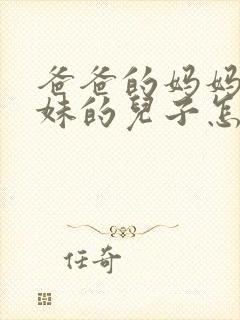 爸爸的妈妈
妹的兒子怎
任奇